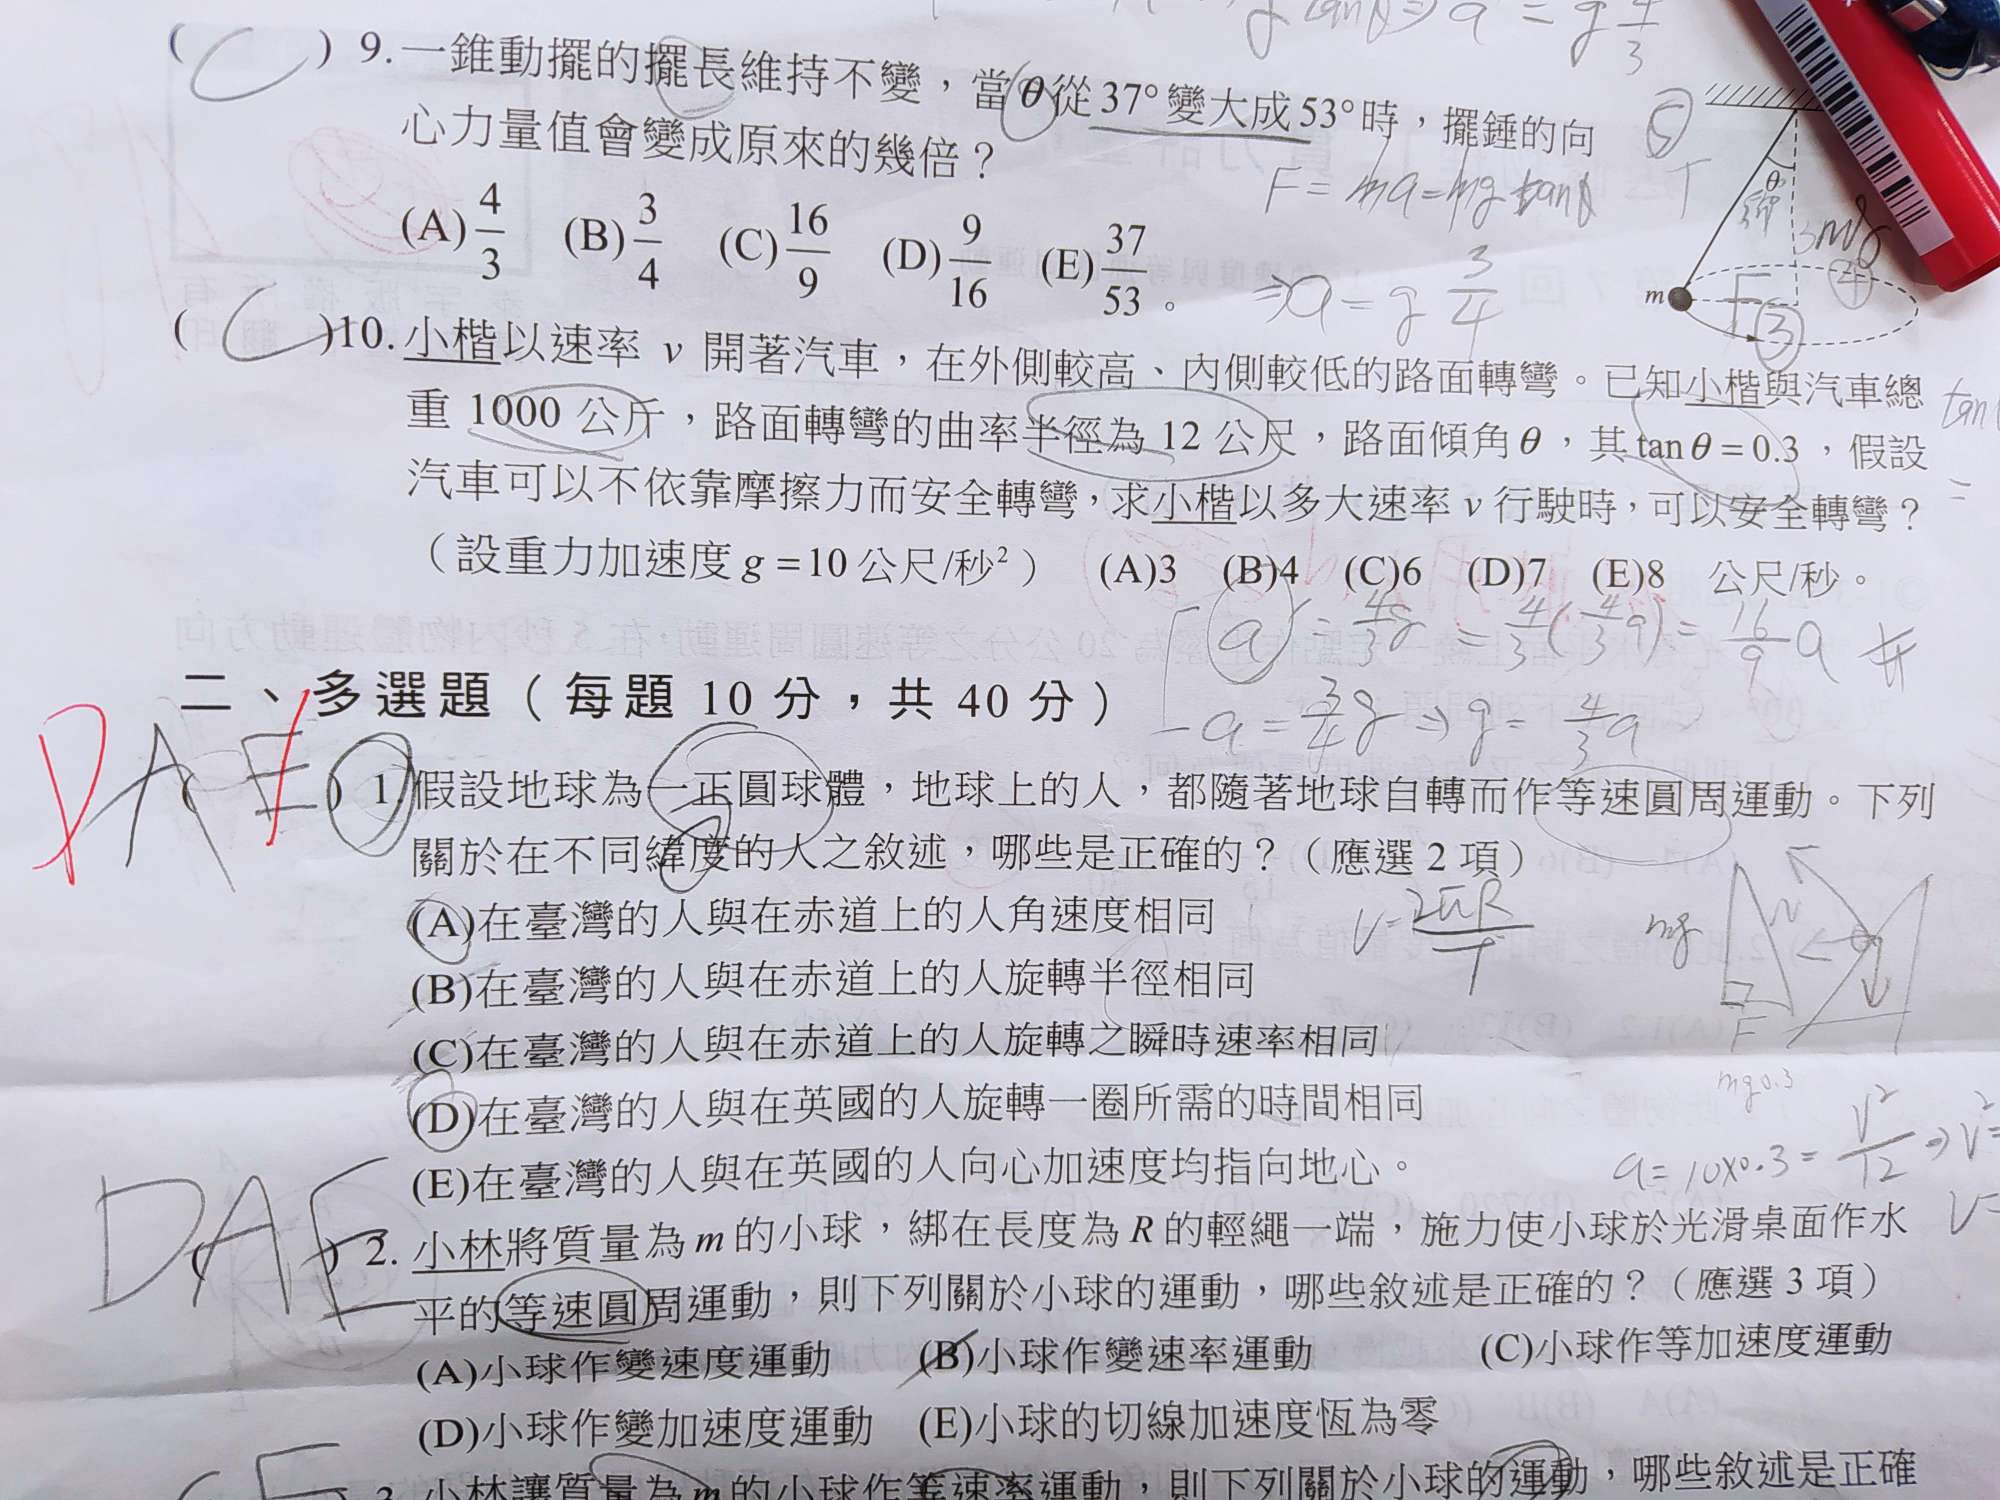 a = g 4/3
( C ) 9. 一錐動擺的擺長維持不變，當 θ 從 37° 變大成 53° 時，擺錘的向
心力量值會變成原來的幾倍？
F = ma = mg tanθ
(A) 4/3 (B) 3/4 (C) 16/9 (D) 9/16 (E) 37/53 。
⇒ a = g 3/4
⑤
T
θ
mg
④
m
F
③
( C )10. 小楷以速率 v 開著汽車，在外側較高、內側較低的路面轉彎。已知小楷與汽車總
重 1000 公斤，路面轉彎的曲率半徑為 12 公尺，路面傾角 θ，其 tan θ = 0.3，假設
汽車可以不依靠摩擦力而安全轉彎，求小楷以多大速率 v 行駛時，可以安全轉彎？
（設重力加速度 g = 10 公尺/秒²） (A)3 (B)4 (C)6 (D)7 (E)8 公尺/秒。
a' = 4/3 g = 4/3 (4/3 a) = 16/9 a
a = 3/4 g ⇒ g = 4/3 a
二、多選題（每題 10 分，共 40 分）
D A E
( ) 1. 假設地球為一正圓球體，地球上的人，都隨著地球自轉而作等速圓周運動。下列
關於在不同緯度的人之敘述，哪些是正確的？（應選 2 項）
(A)在臺灣的人與在赤道上的人角速度相同
V = 2πR/T
mg
N
F
mg 0.3
(B)在臺灣的人與在赤道上的人旋轉半徑相同
(C)在臺灣的人與在赤道上的人旋轉之瞬時速率相同
(D)在臺灣的人與在英國的人旋轉一圈所需的時間相同
(E)在臺灣的人與在英國的人向心加速度均指向地心。
a = 10×0.3 = V²/12 ⇒ V² =
V =
DAE
( ) 2. 小林將質量為 m 的小球，綁在長度為 R 的輕繩一端，施力使小球於光滑桌面作水
平的等速圓周運動，則下列關於小球的運動，哪些敘述是正確的？（應選 3 項）
(A)小球作變速度運動 (B)小球作變速率運動 (C)小球作等加速度運動
(D)小球作變加速度運動 (E)小球的切線加速度恆為零
) 3. 小林讓質量為 m 的小球作等速率運動，則下列關於小球的運動，哪些敘述是正確